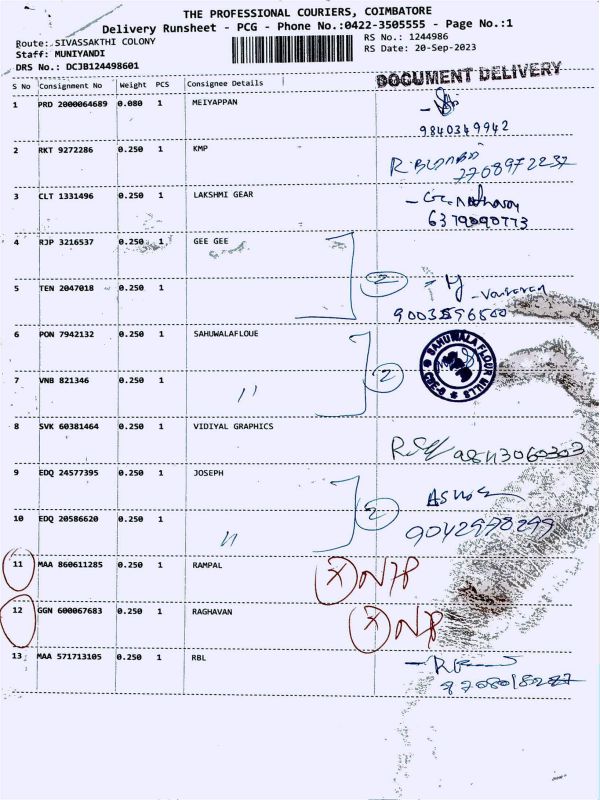 THE PROFESSIONAL COURIERS, COIMBATORE
Delivery Runsheet - PCG - Phone No.:0422-3505555 - Page No.:1
Route: SIVASSAKTHI COLONY
RS No.: 1244986
Staff: MUNIYANDI
RS Date: 20-Sep-2023
DRS No.: DCJB124498601
DOCUMENT DELIVERY
S No Consignment No Weight PCS Consignee Details
1 PRD 2000064689 0.080 1 MEIYAPPAN
9840349942
2 RKT 9272286 0.250 1 KMP
3 CLT 1331496 0.250 1 LAKSHMI GEAR
6379090773
4 RJP 3216537 0.250 1 GEE GEE
2
5 TEN 2047018 0.250 1
6 PON 7942132 0.250 1 SAHUWALAFLOUE
SAHUWALA FLOUR MILLS
2
7 VNB 821346 0.250 1 "
8 SVK 60381464 0.250 1 VIDIYAL GRAPHICS
9843060303
9 EDQ 24577395 0.250 1 JOSEPH
2
10 EDQ 20586620 0.250 1 "
9042978299
11 MAA 860611285 0.250 1 RAMPAL
X
12 GGN 600067683 0.250 1 RAGHAVAN
X
13 MAA 571713105 0.250 1 RBL